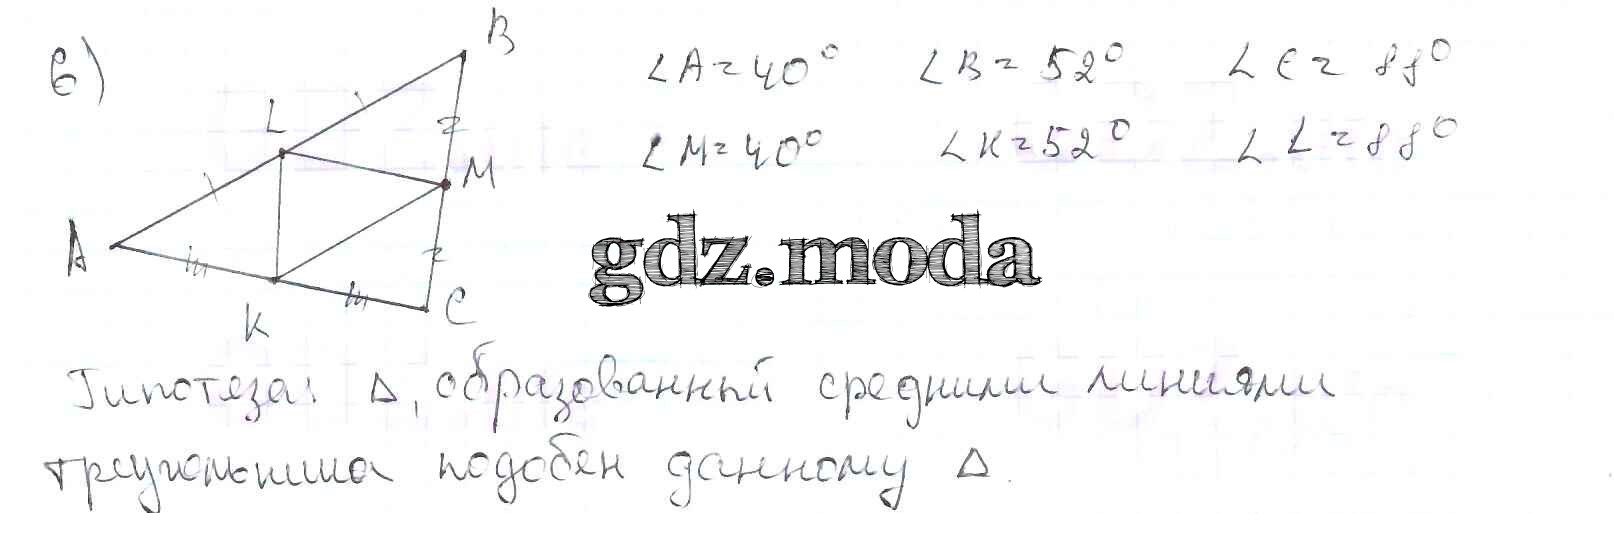 б)
B
∠A = 40° ∠B = 52° ∠C = 88°
L
∠M = 40° ∠K = 52° ∠L = 88°
M
A
gdz.moda
K
C
Гипотеза: Δ, образованный средними линиями
треугольника подобен данному Δ.